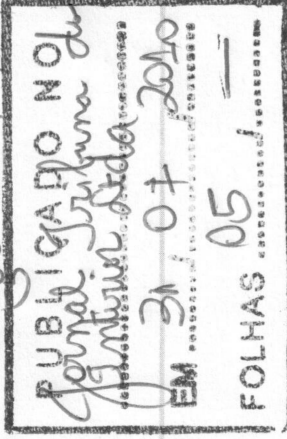 PUBLICADO NO
Jornal Tribuna do
Interior
EM 31 / 07 / 2020
FOLHAS 05 / —